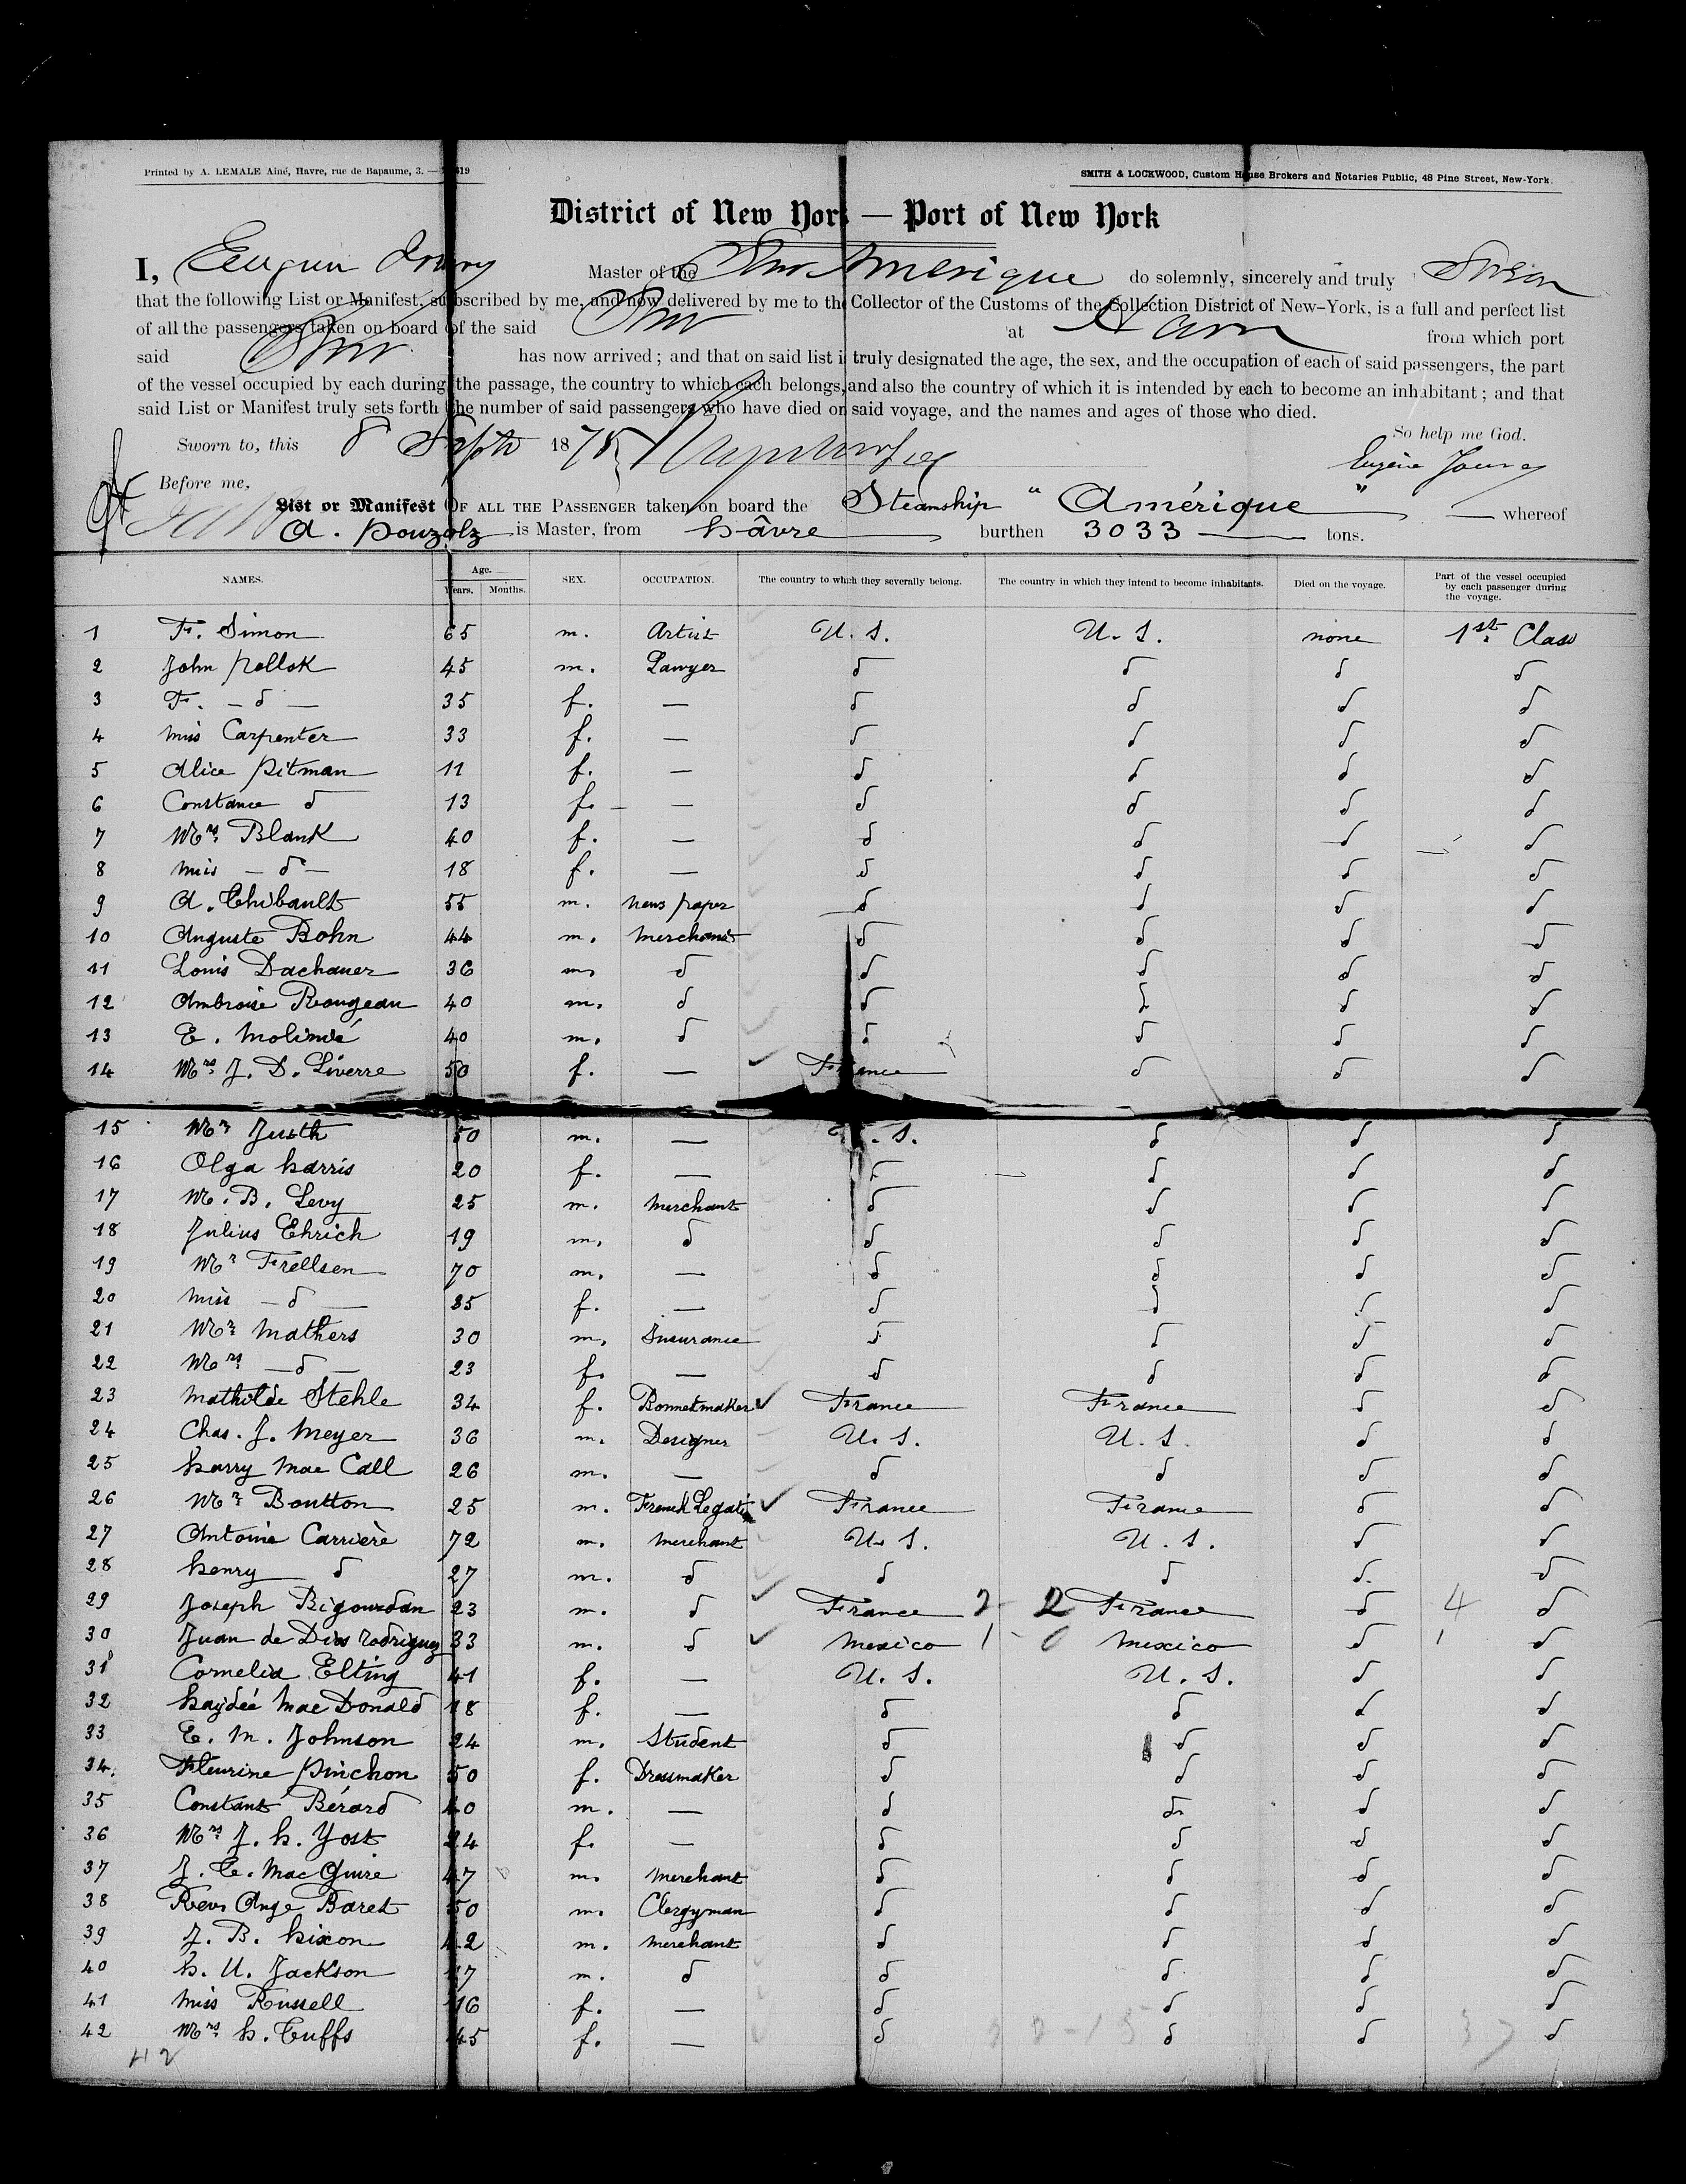 Printed by A. LEMALE Aîné, Havre, rue de Bapaume, 3. —
SMITH & LOCKWOOD, Custom House Brokers and Notaries Public, 48 Pine Street, New-York.
District of New York — Port of New York
I, Master of the Str Amérique do solemnly, sincerely and truly Swear
that the following List or Manifest, subscribed by me, and now delivered by me to the Collector of the Customs of the Collection District of New-York, is a full and perfect list
of all the passengers taken on board of the said Str at Havre from which port
said Str has now arrived; and that on said list is truly designated the age, the sex, and the occupation of each of said passengers, the part
of the vessel occupied by each during the passage, the country to which each belongs, and also the country of which it is intended by each to become an inhabitant; and that
said List or Manifest truly sets forth the number of said passengers who have died on said voyage, and the names and ages of those who died.
So help me God.
Sworn to, this 8 Septr 1875
Eugène
Before me,
List or Manifest OF ALL THE PASSENGER taken on board the Steamship "Amérique" whereof
A. Pouzolz is Master, from Hâvre burthen 3033 tons.
NAMES. Age. Years. Months. SEX. OCCUPATION. The country to which they severally belong. The country in which they intend to become inhabitants. Died on the voyage. Part of the vessel occupied by each passenger during the voyage.
1 F. Simon 65 m. Artist U. S. U. S. none 1st Class
2 John Pollok 45 m. Lawyer d d d d
3 F. — d — 35 f. — d d d d
4 Miss Carpenter 33 f. — d d d d
5 Alice Pitman 11 f. — d d d d
6 Constance d 13 f. — d d d d
7 Mrs. Blank 40 f. — d d d d
8 Miss — d — 18 f. — d d d d
9 A. Thibault 55 m. News paper d d d d
10 Auguste Bohn 44 m. Merchant d d d d
11 Louis Dachauer 36 m. d d d d d
12 Ambroise Rougeau 40 m. d d d d d
13 E. Molinié 40 m. d d d d d
14 Mrs. J. D. Liverre 50 f. — France d d d
15 Mr. Justh 50 m. — U. S. d d d
16 Olga Harris 20 f. — d d d d
17 M. B. Levy 25 m. Merchant d d d d
18 Julius Ehrich 19 m. d d d d d
19 Mr. Frellsen 70 m. — d d d d
20 Miss — d — 25 f. — d d d d
21 Mr. Mathers 30 m. Insurance d d d d
22 Mrs. — d — 23 f. — d d d d
23 Mathilde Stehle 34 f. Bonnetmaker France France d d
24 Chas. J. Meyer 36 m. Designer U. S. U. S. d d
25 Harry Mac Call 26 m. — d d d d
26 Mr. Boutton 25 m. French Legati France France d d
27 Antoine Carrière 72 m. Merchant U. S. U. S. d d
28 Henry d 27 m. d d d d d
29 Joseph Bigourdan 23 m. d France 2 - 2 France d 4 d
30 Juan de Dios Rodriguez 33 m. d Mexico 1 - 0 Mexico d 1 d
31 Cornelia Elting 41 f. — U. S. U. S. d d
32 Haydée Mac Donald 18 f. — d d d d
33 E. M. Johnson 24 m. Student d d d d
34. Fleurine Pinchon 50 f. Dressmaker d d d d
35 Constant Bérard 40 m. — d d d d
36 Mrs. J. H. Yost 24 f. — d d d d
37 J. E. Mac Guire 47 m. Merchant d d d d
38 Rev. Ange Baret 50 m. Clergyman d d d d
39 J. B. Hixon 42 m. Merchant d d d d
40 H. U. Jackson 7 m. d d d d d
41 Miss Russell 16 f. — d d d d
42 Mrs. H. Tuffs 45 f. — d d d d
42 37